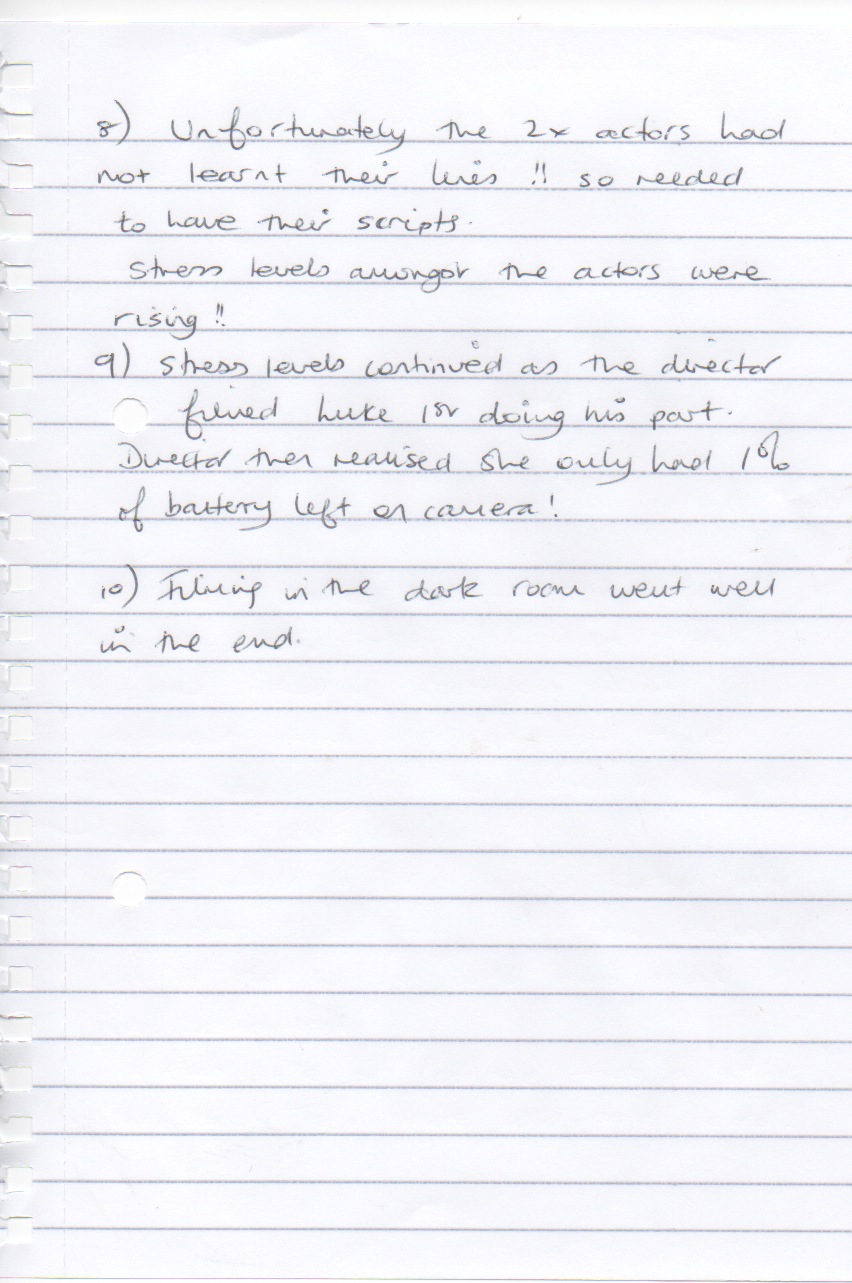 8) Unfortunately the 2x actors had
not learnt their lines !! so needed
to have their scripts.
Stress levels amongst the actors were
rising !!
9) Stress levels continued as the director
filmed Luke 1st doing his part.
Director then realised she only had 1%
of battery left on camera!
10) Filming in the dark room went well
in the end.